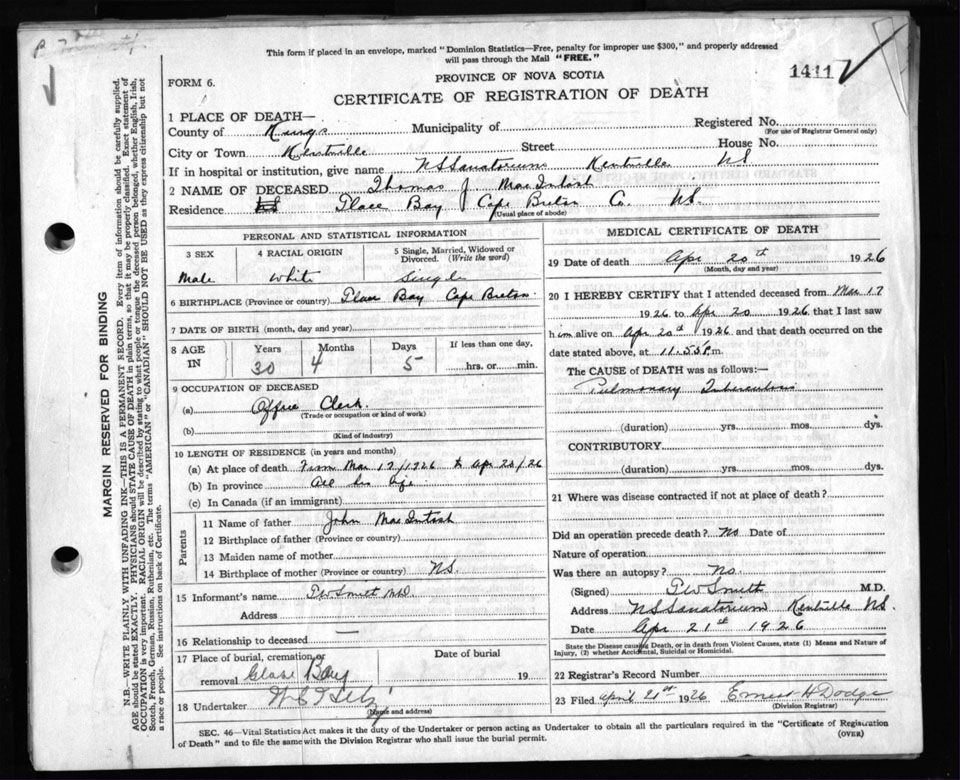 This form if placed in an envelope, marked "Dominion Statistics—Free, penalty for improper use $300," and properly addressed
will pass through the Mail "FREE."
PROVINCE OF NOVA SCOTIA
1411
FORM 6.
CERTIFICATE OF REGISTRATION OF DEATH
1 PLACE OF DEATH—
Registered No.
(For use of Registrar General only)
County of Kings Municipality of
City or Town Kentville Street House No.
If in hospital or institution, give name NS Sanatorium Kentville NS
2 NAME OF DECEASED Thomas J. MacIntosh
Residence Glace Bay Cape Breton Co. NS.
(Usual place of abode)
PERSONAL AND STATISTICAL INFORMATION
3 SEX 4 RACIAL ORIGIN 5 Single, Married, Widowed or Divorced. (Write the word)
Male White Single
6 BIRTHPLACE (Province or country) Glace Bay Cape Breton
7 DATE OF BIRTH (month, day and year)
8 AGE IN Years Months Days If less than one day,
30 4 5 hrs. or min.
9 OCCUPATION OF DECEASED
(a) Office Clerk.
(Trade or occupation or kind of work)
(b)
(Kind of industry)
10 LENGTH OF RESIDENCE (in years and months)
(a) At place of death From Mar 17/1926 to Apr 20/26
(b) In province All his life.
(c) In Canada (if an immigrant)
Parents
11 Name of father John MacIntosh
12 Birthplace of father (Province or country)
13 Maiden name of mother
14 Birthplace of mother (Province or country) NS.
15 Informant's name Smith MD.
Address
16 Relationship to deceased —
17 Place of burial, cremation or removal Glace Bay Date of burial 19
18 Undertaker
(Name and address)
MEDICAL CERTIFICATE OF DEATH
19 Date of death Apr 20th 1926
(Month, day and year)
20 I HEREBY CERTIFY that I attended deceased from Mar 17
1926 to Apr 20 1926 that I last saw
him alive on Apr 20th 1926 and that death occurred on
date stated above, at 11.55 P.m.
The CAUSE of DEATH was as follows:—
Pulmonary Tuberculosis
(duration) yrs. mos. dys.
CONTRIBUTORY
(duration) yrs. mos. dys.
21 Where was disease contracted if not at place of death?
Did an operation precede death? No Date of
Nature of operation
Was there an autopsy? No
(Signed) Smith M.D.
Address NS Sanatorium Kentville NS.
Date Apr 21st 1926
State the Disease causing Death, or in death from Violent Causes, state (1) Means and Nature of
Injury, (2) whether Accidental, Suicidal or Homicidal.
22 Registrar's Record Number
23 Filed April 21st 1926 Ernest H Dodge
(Division Registrar)
SEC. 46—Vital Statistics Act makes it the duty of the Undertaker or person acting as Undertaker to obtain all the particulars required in the "Certificate of Registration
of Death" and to file the same with the Division Registrar who shall issue the burial permit.
(OVER)
MARGIN RESERVED FOR BINDING
N.B.—WRITE PLAINLY, WITH UNFADING INK—THIS IS A PERMANENT RECORD. Every item of information should be carefully supplied.
AGE should be stated EXACTLY. PHYSICIANS should STATE CAUSE OF DEATH in plain terms, so that it may be properly classified. Exact statement of
OCCUPATION is very important. RACIAL ORIGIN will be described by stating to what people or tongue the deceased person belonged, whether English, Irish,
Scotch, French, German, Russian, Ruthenian, etc. The terms "AMERICAN" or "CANADIAN" SHOULD NOT BE USED as they express citizenship but not
a race or people. See instructions on back of Certificate.